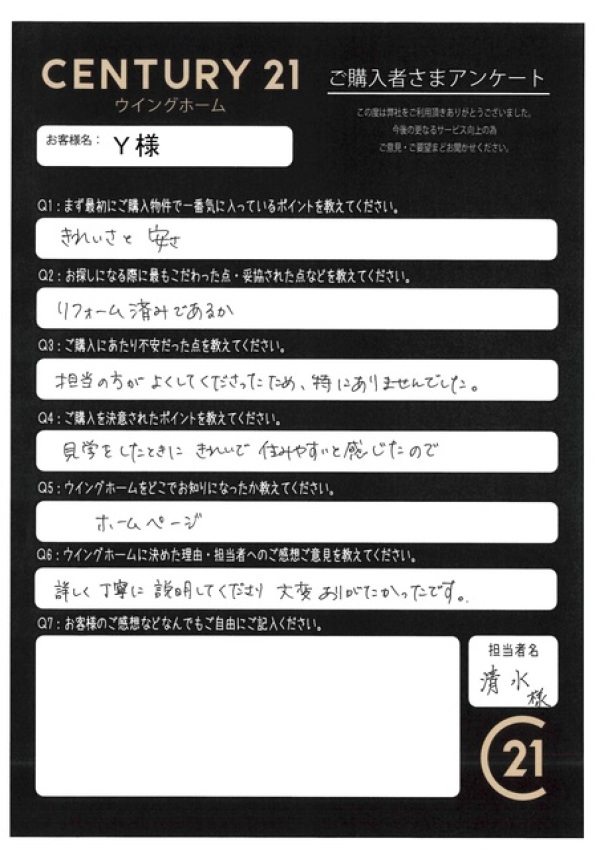 CENTURY 21
ウイングホーム
ご購入者さまアンケート
この度は弊社をご利用頂きありがとうございました。
今後の更なるサービス向上の為
ご意見・ご要望までお聞かせください。
お客様名： Y様
Q1：まず最初にご購入物件で一番気に入っているポイントを教えてください。
きれいさと 安さ
Q2：お探しになる際に最もこだわった点・妥協された点などを教えてください。
リフォーム済みであるか
Q3：ご購入にあたり不安だった点を教えてください。
担当の方が よくしてくださったため、特にありませんでした。
Q4：ご購入を決意されたポイントを教えてください。
見学をしたときに きれいで 住みやすいと感じたので
Q5：ウイングホームをどこでお知りになったか教えてください。
ホームページ
Q6：ウイングホームに決めた理由・担当者へのご感想ご意見を教えてください。
詳しく 丁寧に 説明してくださり 大変 ありがたかったです。
Q7：お客様のご感想などなんでもご自由にご記入ください。
担当者名
清水
様
C21